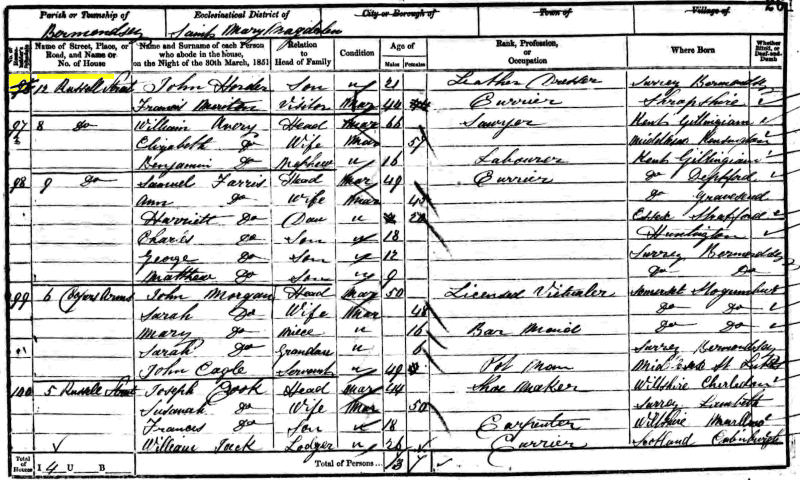 Parish or Township of Ecclesiastical District of City or Borough of Town of Village of
Bermondsey Saint Mary Magdalen
Name of Street, Place, or Road, and Name or No. of House Name and Surname of each Person who abode in the house, on the Night of the 30th March, 1851 Relation to Head of Family Condition Age of Males Females Rank, Profession, or Occupation Where Born Whether Blind, or Deaf-and-Dumb
12 Russell Street John Son u 21 Leather Dresser Surrey Bermondsey
Francis Visitor Mar 44 Currier Shropshire
97 8 do William Avery Head Mar 66 Sawyer Kent Gillingham
Elizabeth do Wife Mar Middlesex
Benjamin do Nephew u 16 Labourer Kent Gillingham
98 9 do Samuel Farris Head Mar 49 Currier do Deptford
Ann do Wife Mar do Gravesend
Harriett do Dau u Essex Stratford
Charles do Son u 18
George do Son u 12 Surrey Bermondsey
Matthew do Son u 9 do do
99 6 Arms John Morgan Head Mar 50 Licensed Victualer Somerset
Sarah do Wife Mar 48 do do
Mary do Niece u 16 Bar Maid do do
Sarah do u 6 Surrey Bermondsey
John Cagle Servant u 49 Pot Man St Lukes
100 5 Russell Street Joseph Cook Head Mar 44 Shoe Maker Wiltshire
Susanah do Wife Mar 50 Surrey Lambeth
Francis do Son u 18 Carpenter Wiltshire
William Tuck Lodger u 26 Currier Scotland
Total of Houses I 4 U B Total of Persons 13 7